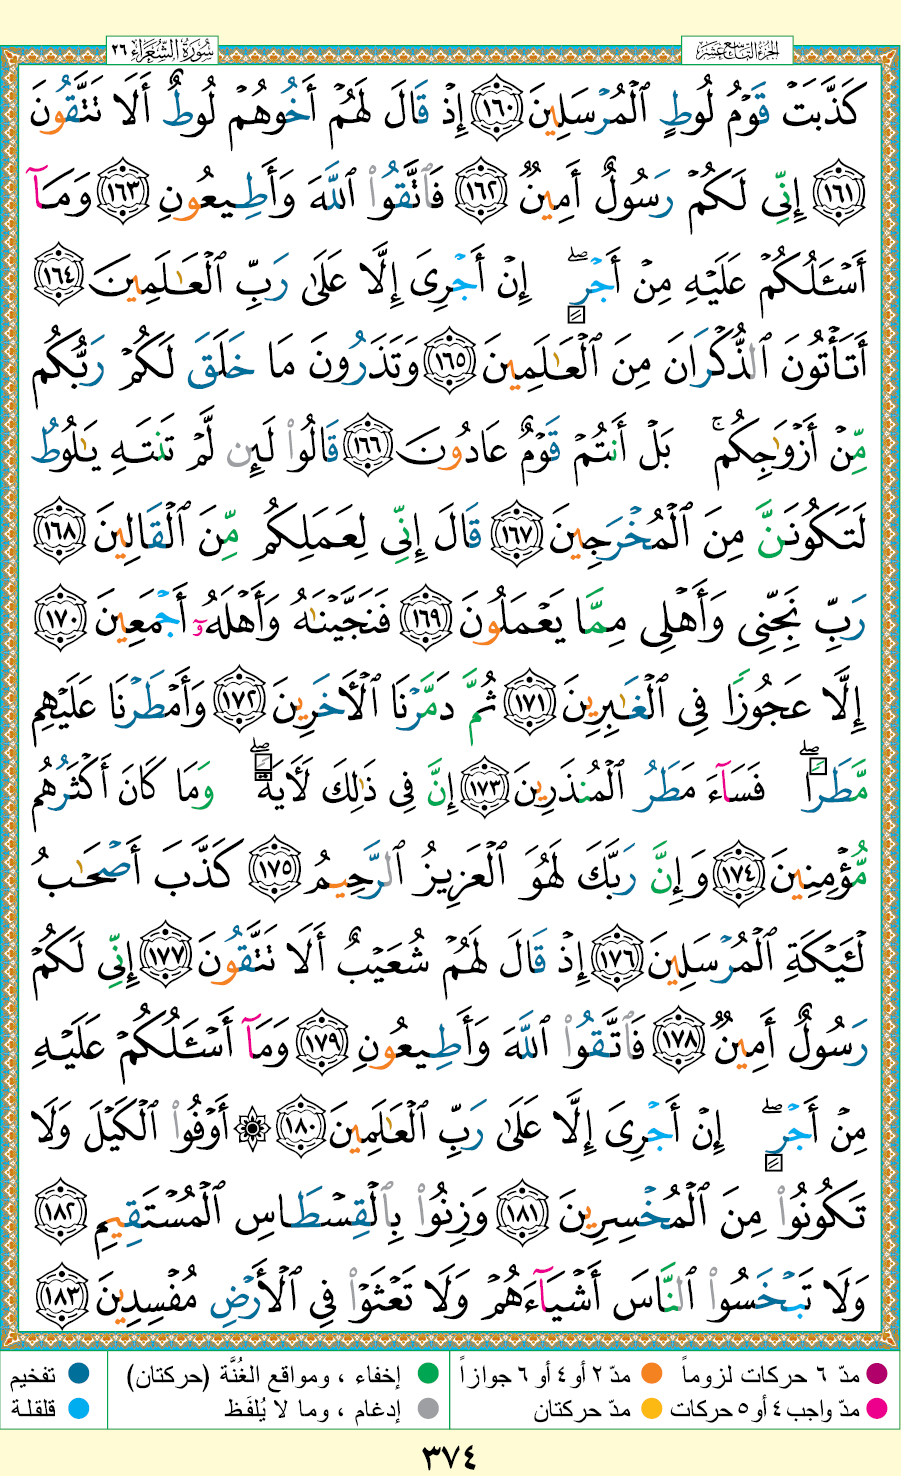 سُورَةُ الشُّعَرَاءِ ٢٦
الجزء التاسع عشر
كَذَّبَتۡ قَوۡمُ لُوطٍ ٱلۡمُرۡسَلِينَ ١٦٠ إِذۡ قَالَ لَهُمۡ أَخُوهُمۡ لُوطٌ أَلَا تَتَّقُونَ
١٦١ إِنِّي لَكُمۡ رَسُولٌ أَمِينٌ ١٦٢ فَٱتَّقُواْ ٱللَّهَ وَأَطِيعُونِ ١٦٣ وَمَآ
أَسۡـَٔلُكُمۡ عَلَيۡهِ مِنۡ أَجۡرٍۖ إِنۡ أَجۡرِيَ إِلَّا عَلَىٰ رَبِّ ٱلۡعَٰلَمِينَ ١٦٤
أَتَأۡتُونَ ٱلذُّكۡرَانَ مِنَ ٱلۡعَٰلَمِينَ ١٦٥ وَتَذَرُونَ مَا خَلَقَ لَكُمۡ رَبُّكُم
مِّنۡ أَزۡوَٰجِكُمۚ بَلۡ أَنتُمۡ قَوۡمٌ عَادُونَ ١٦٦ قَالُواْ لَئِن لَّمۡ تَنتَهِ يَٰلُوطُ
لَتَكُونَنَّ مِنَ ٱلۡمُخۡرَجِينَ ١٦٧ قَالَ إِنِّي لِعَمَلِكُم مِّنَ ٱلۡقَالِينَ ١٦٨
رَبِّ نَجِّنِي وَأَهۡلِي مِمَّا يَعۡمَلُونَ ١٦٩ فَنَجَّيۡنَٰهُ وَأَهۡلَهُۥٓ أَجۡمَعِينَ ١٧٠
إِلَّا عَجُوزٗا فِي ٱلۡغَٰبِرِينَ ١٧١ ثُمَّ دَمَّرۡنَا ٱلۡأٓخَرِينَ ١٧٢ وَأَمۡطَرۡنَا عَلَيۡهِم
مَّطَرٗاۖ فَسَآءَ مَطَرُ ٱلۡمُنذَرِينَ ١٧٣ إِنَّ فِي ذَٰلِكَ لَأٓيَةٗۖ وَمَا كَانَ أَكۡثَرُهُم
مُّؤۡمِنِينَ ١٧٤ وَإِنَّ رَبَّكَ لَهُوَ ٱلۡعَزِيزُ ٱلرَّحِيمُ ١٧٥ كَذَّبَ أَصۡحَٰبُ
لۡـَٔيۡكَةِ ٱلۡمُرۡسَلِينَ ١٧٦ إِذۡ قَالَ لَهُمۡ شُعَيۡبٌ أَلَا تَتَّقُونَ ١٧٧ إِنِّي لَكُمۡ
رَسُولٌ أَمِينٌ ١٧٨ فَٱتَّقُواْ ٱللَّهَ وَأَطِيعُونِ ١٧٩ وَمَآ أَسۡـَٔلُكُمۡ عَلَيۡهِ
مِنۡ أَجۡرٍۖ إِنۡ أَجۡرِيَ إِلَّا عَلَىٰ رَبِّ ٱلۡعَٰلَمِينَ ١٨٠ ۞ أَوۡفُواْ ٱلۡكَيۡلَ وَلَا
تَكُونُواْ مِنَ ٱلۡمُخۡسِرِينَ ١٨١ وَزِنُواْ بِٱلۡقِسۡطَاسِ ٱلۡمُسۡتَقِيمِ ١٨٢
وَلَا تَبۡخَسُواْ ٱلنَّاسَ أَشۡيَآءَهُمۡ وَلَا تَعۡثَوۡاْ فِي ٱلۡأَرۡضِ مُفۡسِدِينَ ١٨٣
مدّ ٦ حركات لزوماً مدّ ٢ أو ٤ أو ٦ جوازاً إخفاء ، ومواقع الغُنَّة (حركتان) تفخيم
مدّ واجب ٤ أو ٥ حركات مدّ حركتان إدغام ، وما لا يُلفَظ قلقلة
٣٧٤